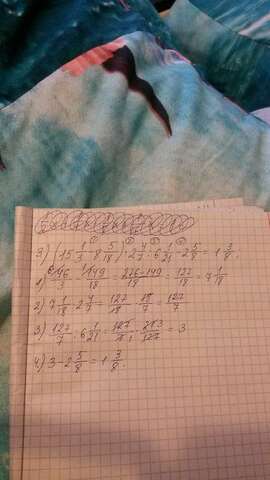 3.) (15 1/3 - 8 5/18) · 2 4/7 : 6 1/21 - 2 5/8 = 1 3/8
1) 46/3 - 149/18 = 276-149/18 = 127/18 = 7 1/18
2) 7 1/18 · 2 4/7 = 127/18 · 18/7 = 127/7
3) 127/7 : 6 1/21 = 127/7 · 21/127 = 3
4.) 3 - 2 5/8 = 1 3/8.